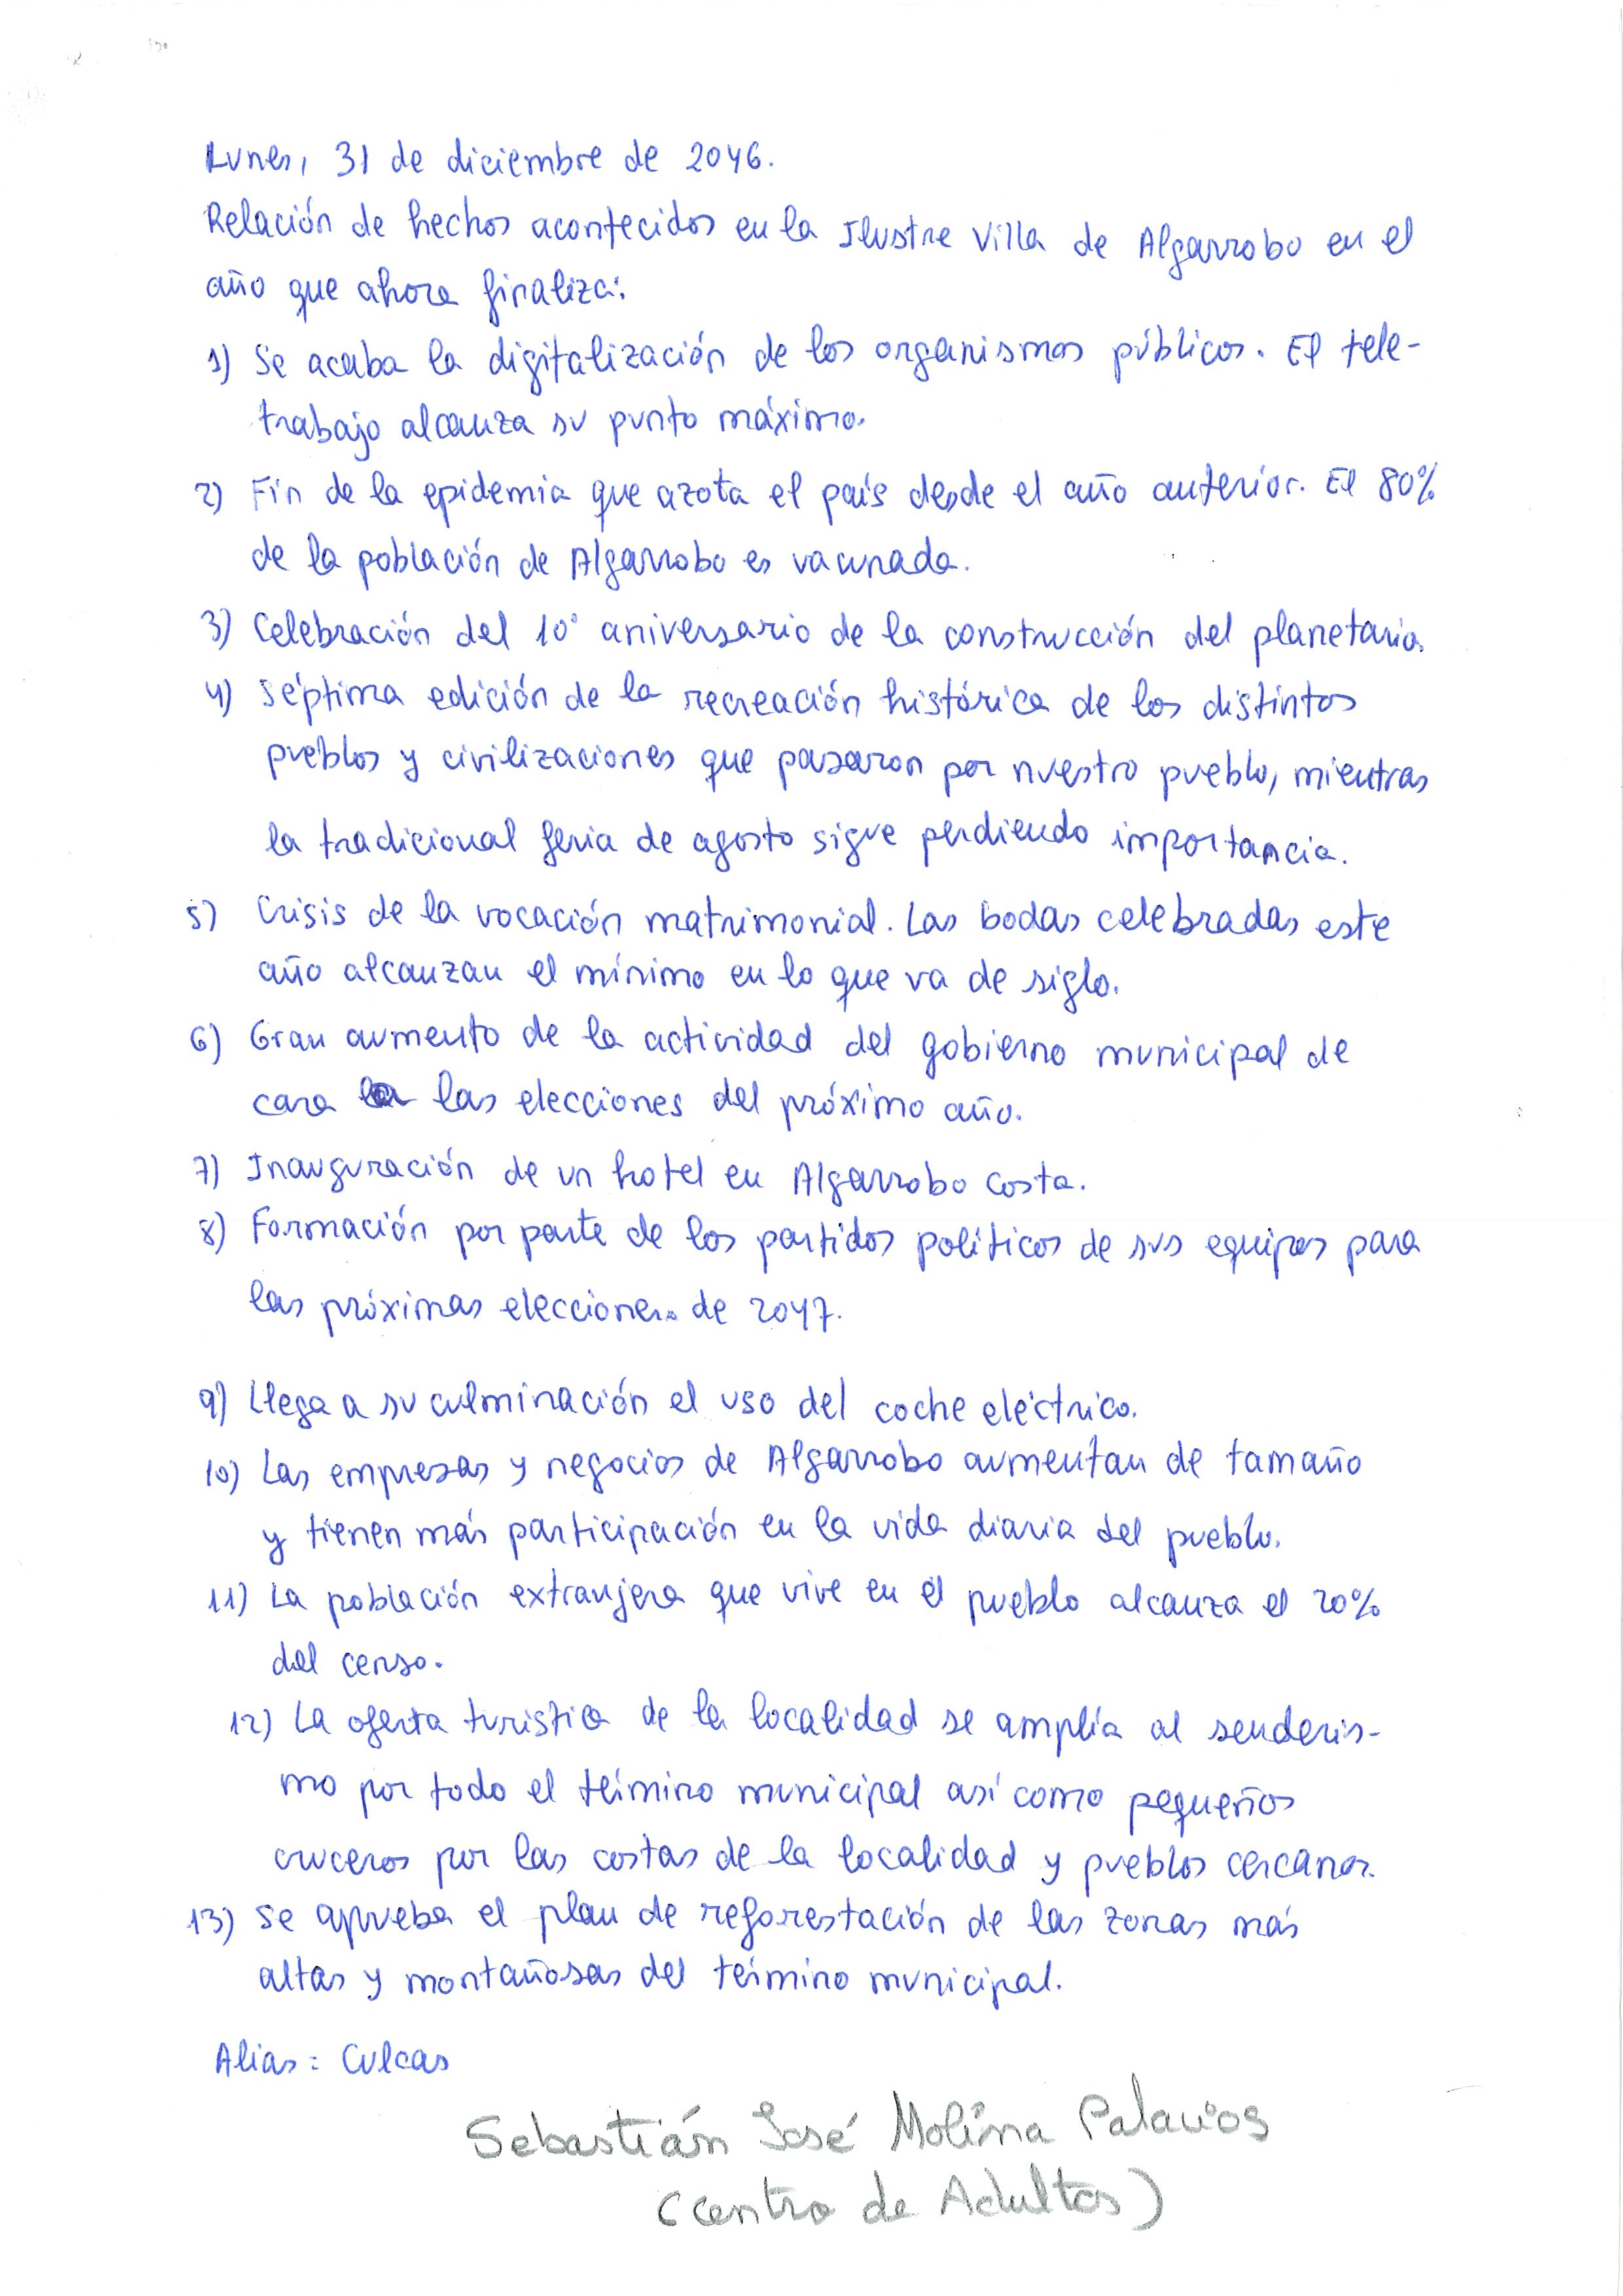 Lunes, 31 de diciembre de 2046.
Relación de hechos acontecidos en la Ilustre Villa de Algarrobo en el
año que ahora finaliza:
1) Se acaba la digitalización de los organismos públicos. El tele-
trabajo alcanza su punto máximo.
2) Fin de la epidemia que azota el país desde el año anterior. El 80%
de la población de Algarrobo es vacunada.
3) Celebración del 10º aniversario de la construcción del planetario.
4) Séptima edición de la recreación histórica de los distintos
pueblos y civilizaciones que pasaron por nuestro pueblo, mientras
la tradicional feria de agosto sigue perdiendo importancia.
5) Crisis de la vocación matrimonial. Las bodas celebradas este
año alcanzan el mínimo en lo que va de siglo.
6) Gran aumento de la actividad del gobierno municipal de
cara a las elecciones del próximo año.
7) Inauguración de un hotel en Algarrobo Costa.
8) Formación por parte de los partidos políticos de sus equipos para
las próximas elecciones de 2047.
9) Llega a su culminación el uso del coche eléctrico.
10) Las empresas y negocios de Algarrobo aumentan de tamaño
y tienen más participación en la vida diaria del pueblo.
11) La población extranjera que vive en el pueblo alcanza el 20%
del censo.
12) La oferta turística de la localidad se amplía al senderis-
mo por todo el término municipal así como pequeños
cruceros por las costas de la localidad y pueblos cercanos.
13) Se aprueba el plan de reforestación de las zonas más
altas y montañosas del término municipal.
Alias: Culcas
Sebastián José Molina Palacios
(Centro de Adultos)